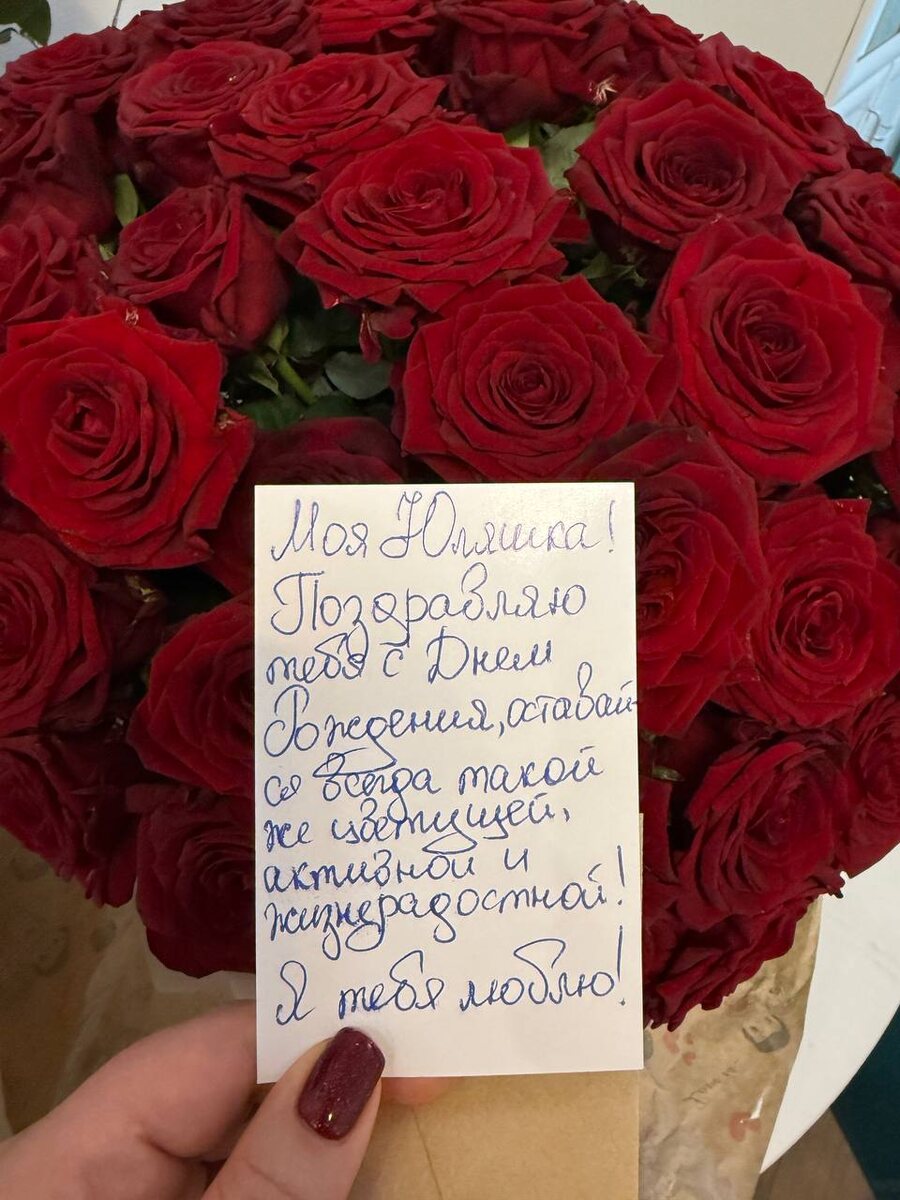 Моя Юляшка!
Поздравляю
тебя с Днем
Рождения, оставай-
ся всегда такой
же цветущей,
активной и
жизнерадостной!
Я тебя люблю!